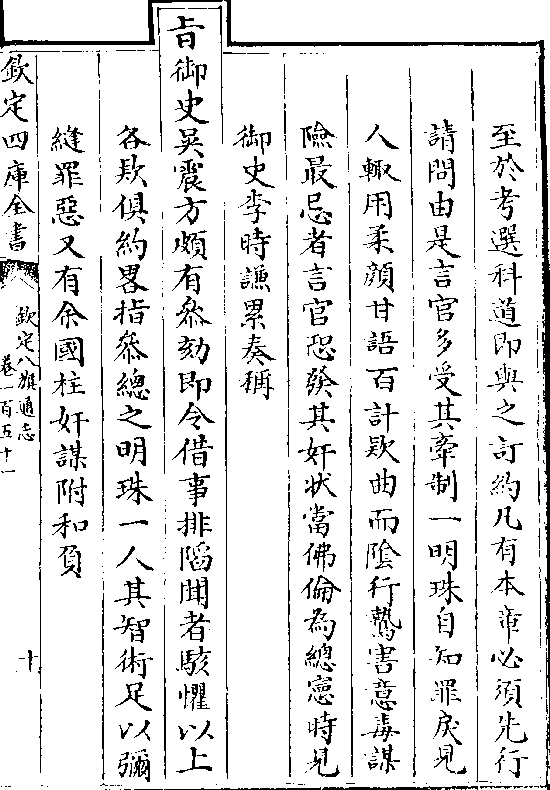 至於考選科道即與之訂約凡有本章必須先行
請問由是言官多受其牽制一明珠自知罪戾見
人輙用柔顔甘語百計欵曲而隂行鷙害意毒謀
險最忌者言官恐發其奸狀當佛倫為總憲時見
御史李時謙累奏稱
旨御史吳震方頗有叅劾即令借事排䧟聞者駭懼以上
各欵俱約畧指叅總之明珠一人其智術足以彌
縫罪惡又有余國柱奸謀附和負
欽定四庫全書
欽定八旗通志
卷一百五十一
十